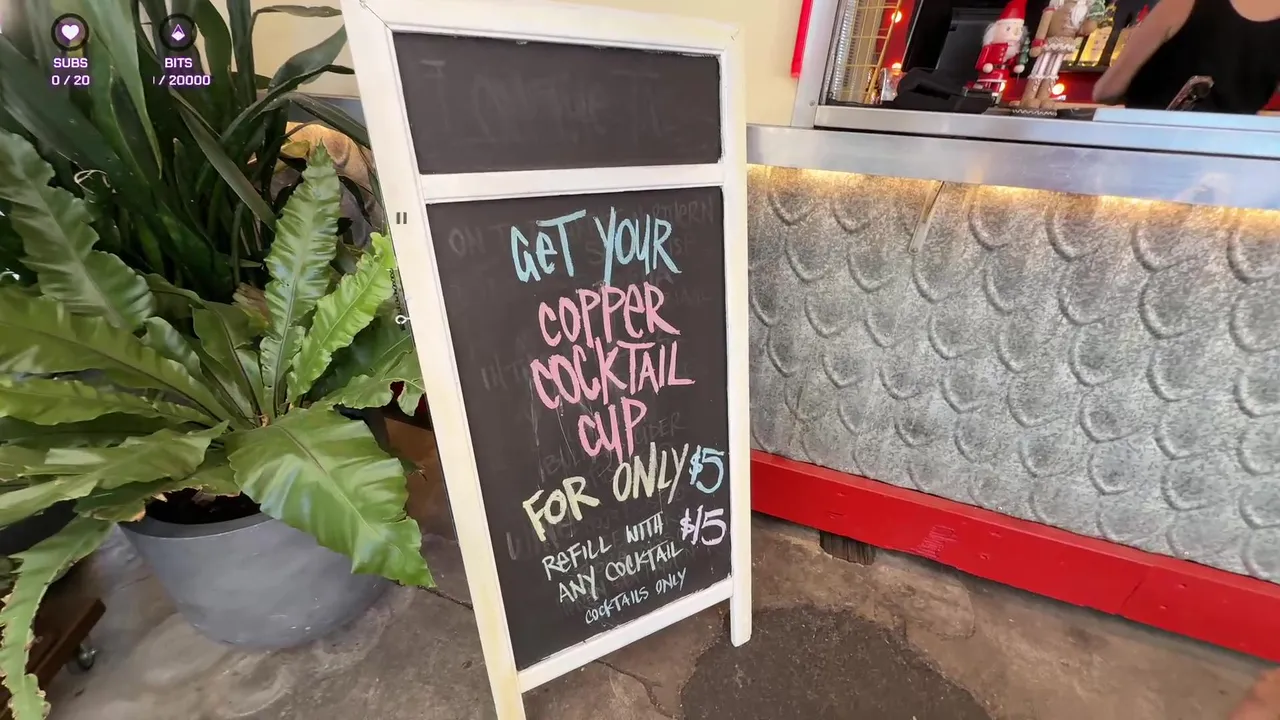 SUBS
BITS
0 / 20
/ 20000
GET YOUR
COPPER
COCKTAIL
CUP
FOR ONLY $5
REFILL WITH $15
ANY COCKTAIL
COCKTAILS ONLY